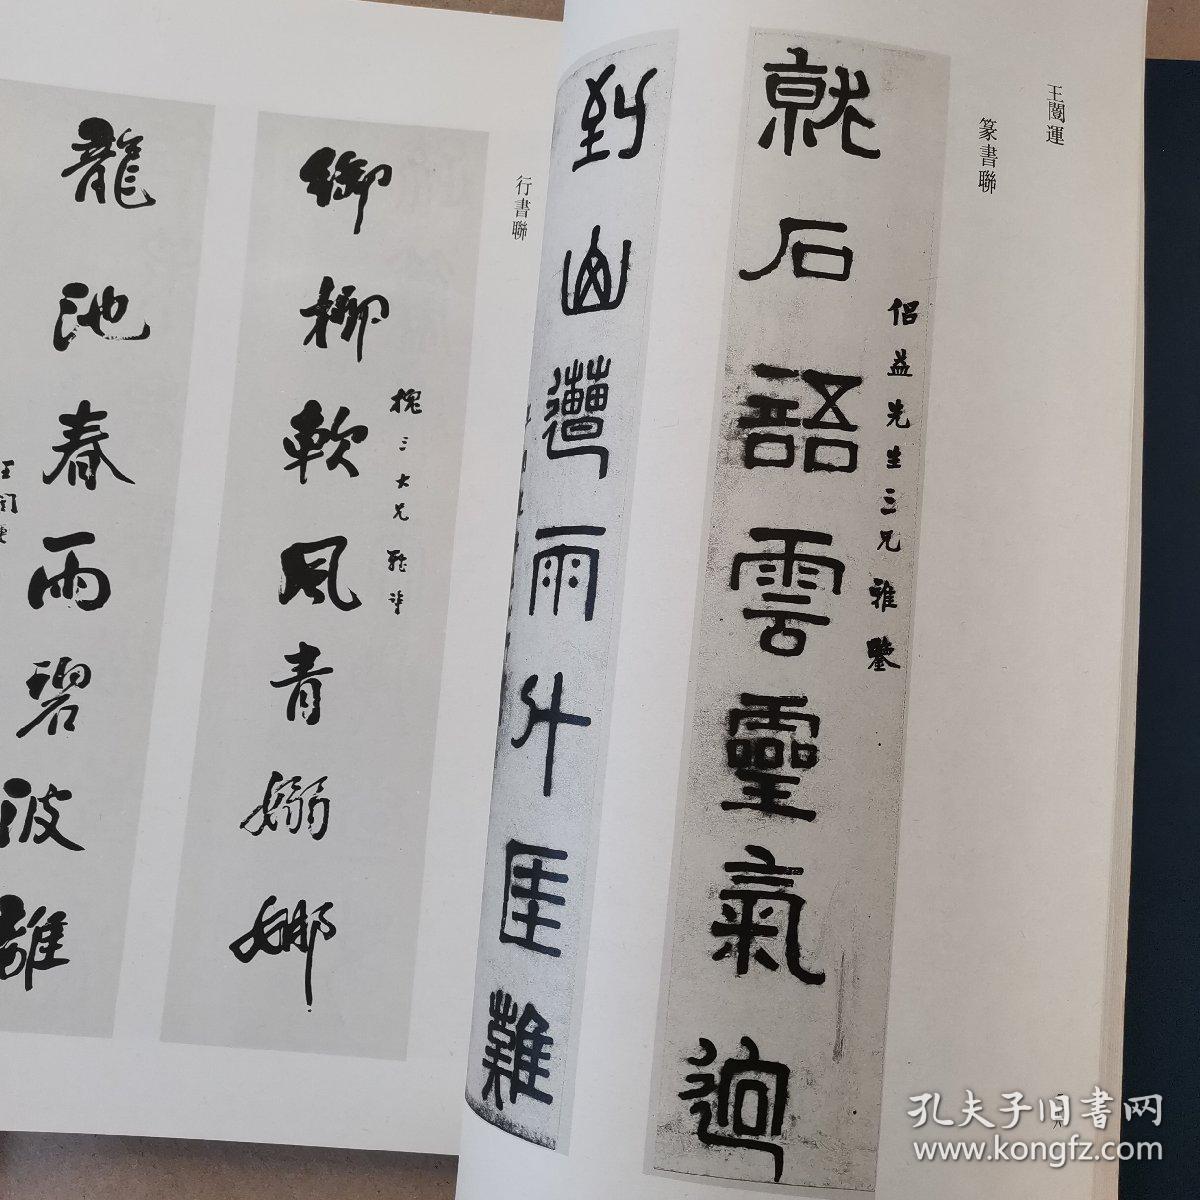 王闓運
篆書聯
侣益先生三兄雅鑒
就石語雲靈氣迥
到山遭雨升厓難
行書聯
槐三大兄雅
御柳軟風青嫋娜
龍池春雨碧波離
王闓運
孔夫子旧書网
www.kongfz.com